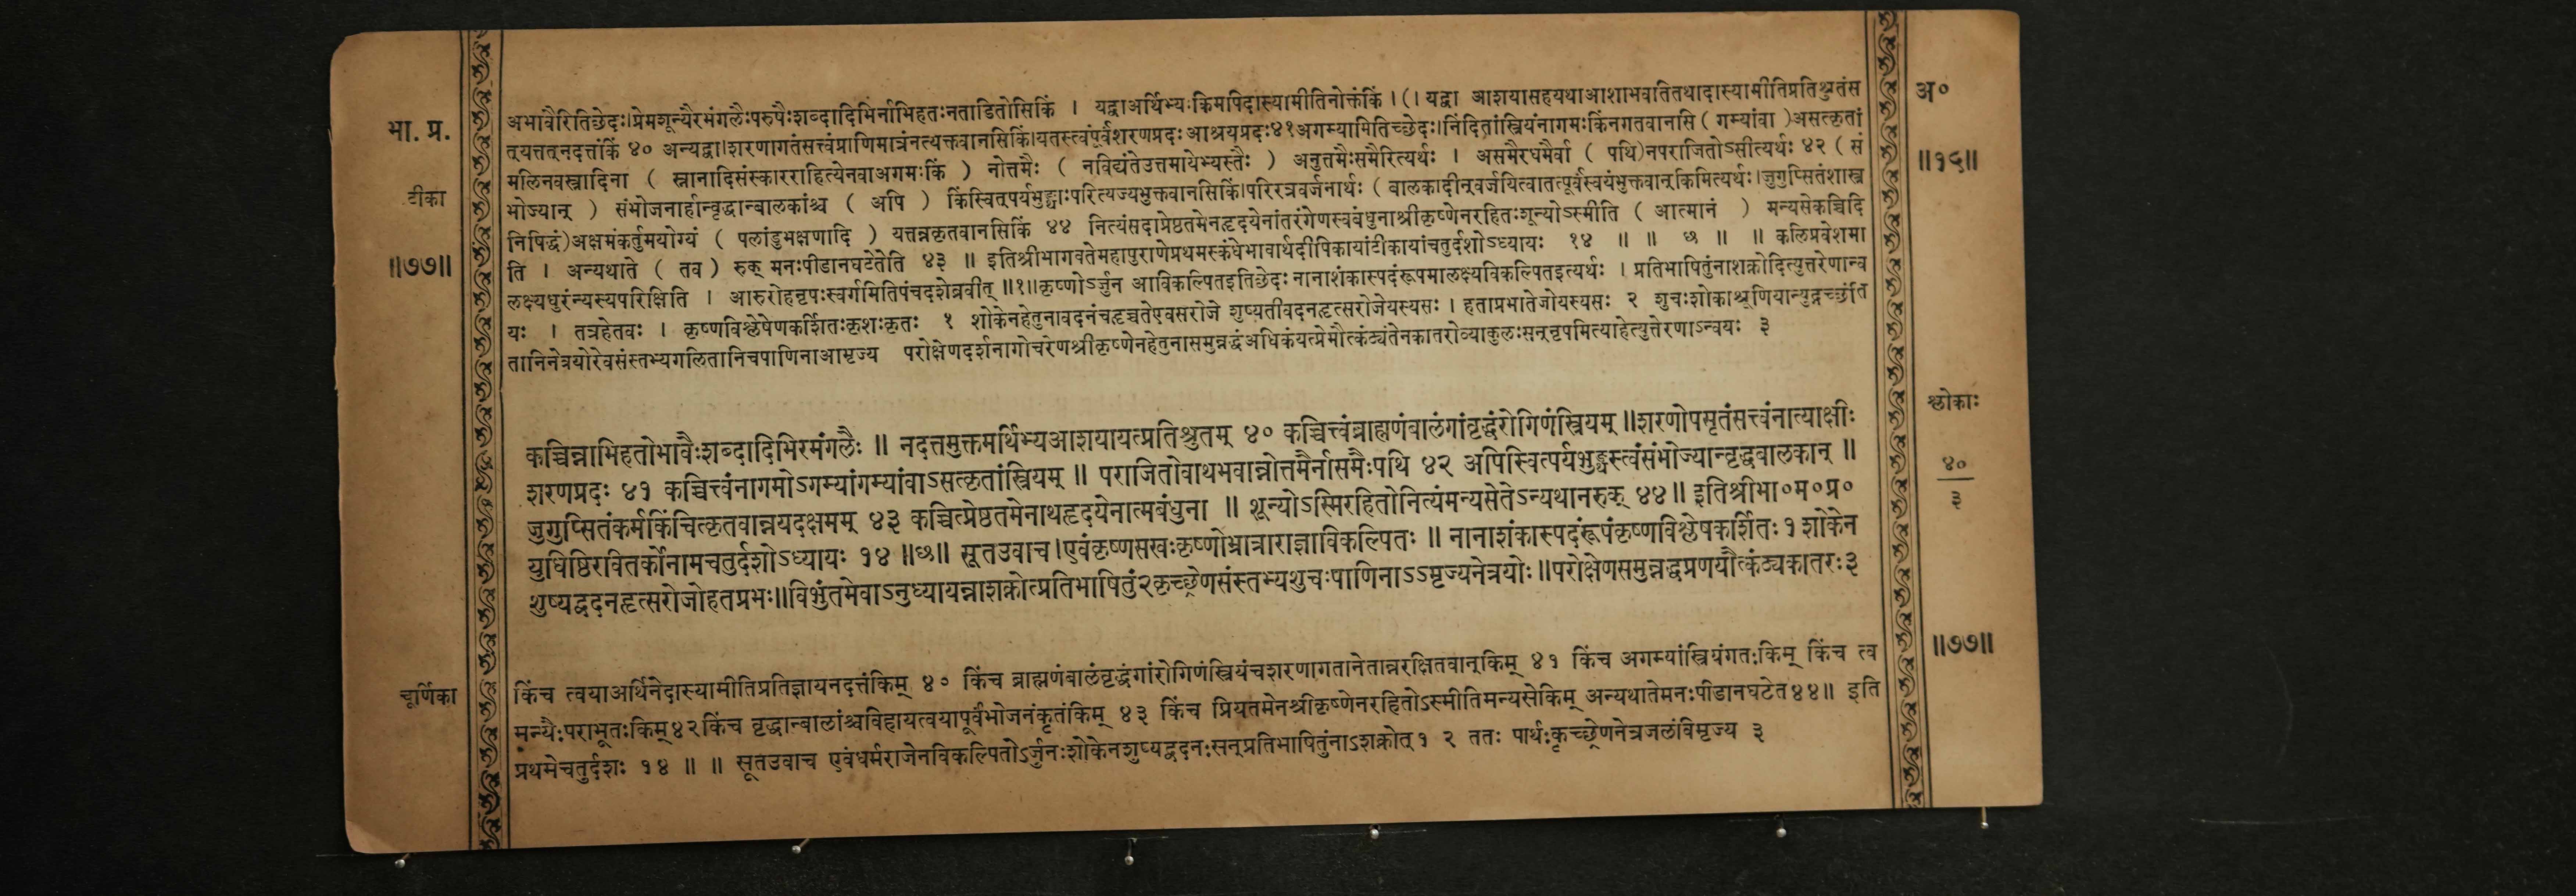 भा. प्र.
टीका
॥७७॥
चूर्णिका
अभावैरितिछेदः।प्रेमशून्यैरमंगलैःपरुषैःशब्दादिभिर्नाभिहतःनताडितोसिकिं । यद्वाअर्थिभ्यःकिमपिदास्यामीतिनोक्तंकिं ।(। यद्वा आशयासहयथाआशाभवतितथादास्यामीतिप्रतिश्रुतंस
त्‌यत्तत्‌नदत्तंकिं ४० अन्यद्वा।शरणागतंसत्त्वंप्राणिमात्रंनत्यक्तवानसिकिं।यतस्त्वंपूर्वंशरणप्रदः आश्रयप्रदः४१अगम्यामितिच्छेदः।निंदितांस्त्रियंनागमःकिंनगतवानसि ( गम्यांवा )असत्कृतां
मलिनवस्त्रादिना ( स्नानादिसंस्कारराहित्येनवाअगमःकिं ) नोत्तमैः ( नविद्यंतेउत्तमायेभ्यस्तैः ) अनुत्तमैःसमैरित्यर्थः । असमैरधमैर्वा ( पथि)नपराजितोऽसीत्यर्थः ४२ ( सं
भोज्यान् ) संभोजनार्हान्वृद्धान्बालकांश्च ( अपि ) किंस्वित्‌पर्यभुङ्क्थाःपरित्यज्यभुक्तवानसिकिं।परिरत्रवर्जनार्थः ( बालकादीन्‌वर्जयित्वातत्पूर्वंस्वयंभुक्तवान्‌किमित्यर्थः।जुगुप्सितंशास्त्र
निषिद्धं)अक्षमंकर्तुमयोग्यं ( पलांडुभक्षणादि ) यत्तन्नकृतवानसिकिं ४४ नित्यंसदाप्रेष्ठतमेनहृदयेनांतरंगेणस्वबंधुनाश्रीकृष्णेनरहितःशून्योऽस्मीति ( आत्मानं ) मन्यसेकच्चिदि
ति । अन्यथाते ( तव ) रुक् मनःपीडानघटेतेति ४३ ॥ इतिश्रीभागवतेमहापुराणेप्रथमस्कंधेभावार्थदीपिकायांटीकायांचतुर्दशोऽध्यायः १४ ॥ ॥ छ ॥ ॥ कलिप्रवेशमा
लक्ष्यधुरंन्यस्यपरिक्षिति । आरुरोहनृपःस्वर्गमितिपंचदशेब्रवीत् ॥१॥कृष्णोऽर्जुन आविकल्पितइतिछेदः नानाशंकास्पदंरूपमालक्ष्यविकल्पितइत्यर्थः । प्रतिभाषितुंनाशक्नोदित्युत्तरेणान्व
यः । तत्रहेतवः । कृष्णविश्लेषेणकर्शितःकृशःकृतः १ शोकेनहेतुनावदनंचहृच्चतेएवसरोजे शुष्यतीवदनहृत्सरोजेयस्यसः । हताप्रभातेजोयस्यसः २ शुचःशोकाश्रूणियान्युद्गच्छंति
तानिनेत्रयोरेवसंस्तभ्यगलितानिचपाणिनाआमृज्य परोक्षेणदर्शनागोचरेणश्रीकृष्णेनहेतुनासमुन्नद्धंअधिकंयत्प्रेमौत्कंठ्यंतेनकातरोव्याकुलःसन्‌नृपमित्याहेत्युत्तरेणाऽन्वयः ३
कच्चिन्नाभिहतोभावैःशब्दादिभिरमंगलैः ॥ नदत्तमुक्तमर्थिभ्यआशयायत्प्रतिश्रुतम् ४० कच्चित्त्वंब्राह्मणंबालंगांवृद्धंरोगिणंस्त्रियम् ॥शरणोपसृतंसत्त्वंनात्याक्षीः
शरणप्रदः ४१ कच्चित्त्वंनागमोऽगम्यांगम्यांवाऽसत्कृतांस्त्रियम् ॥ पराजितोवाथभवान्नोत्तमैर्नासमैःपथि ४२ अपिस्वित्पर्यभुङ्क्थस्त्वंसंभोज्यान्वृद्धबालकान् ॥
जुगुप्सितंकर्मकिंचित्कृतवान्नयदक्षमम् ४३ कच्चित्प्रेष्ठतमेनाथहृदयेनात्मबंधुना ॥ शून्योऽस्मिरहितोनित्यंमन्यसेतेऽन्यथानरुक् ४४॥ इतिश्रीभा०म०प्र०
युधिष्ठिरवितर्कोनामचतुर्दशोऽध्यायः १४ ॥छ॥ सूतउवाच।एवंकृष्णसखःकृष्णोभ्रात्राराज्ञाविकल्पितः ॥ नानाशंकास्पदंरूपंकृष्णविश्लेषकर्शितः १ शोकेन
शुष्यद्वदनहृत्सरोजोहतप्रभः॥विभुंतमेवाऽनुध्यायन्नाशक्नोत्प्रतिभाषितुं२कृच्छ्रेणसंस्तभ्यशुचःपाणिनाऽऽमृज्यनेत्रयोः॥परोक्षेणसमुन्नद्धप्रणयौत्कंठ्यकातरः३
किंच त्वयाअर्थिनेदास्यामीतिप्रतिज्ञायनदत्तंकिम् ४० किंच ब्राह्मणंबालंवृद्धंगांरोगिणंस्त्रियंचशरणागतानेतान्नरक्षितवान्‌किम् ४१ किंच अगम्यांस्त्रियंगतःकिम् किंच त्व
मन्यैःपराभूतःकिम्४२किंच वृद्धान्बालांश्चविहायत्वयापूर्वंभोजनंकृतंकिम् ४३ किंच प्रियतमेनश्रीकृष्णेनरहितोऽस्मीतिमन्यसेकिम् अन्यथातेमनःपीडानघटेत४४॥ इति
प्रथमेचतुर्दशः १४ ॥ ॥ सूतउवाच एवंधर्मराजेनविकल्पितोऽर्जुनःशोकेनशुष्यद्वदनःसन्‌प्रतिभाषितुंनाऽशक्नोत्‌१ २ ततः पार्थःकृच्छ्रेणनेत्रजलंविमृज्य ३
अ०
॥१५॥
श्लोकाः
४०
३
॥७७॥